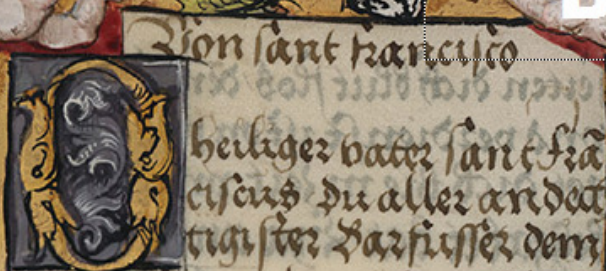 Von sant francisco
O
heiliger vater sant frā
ciscus du aller andech
tigister Barfusser dem